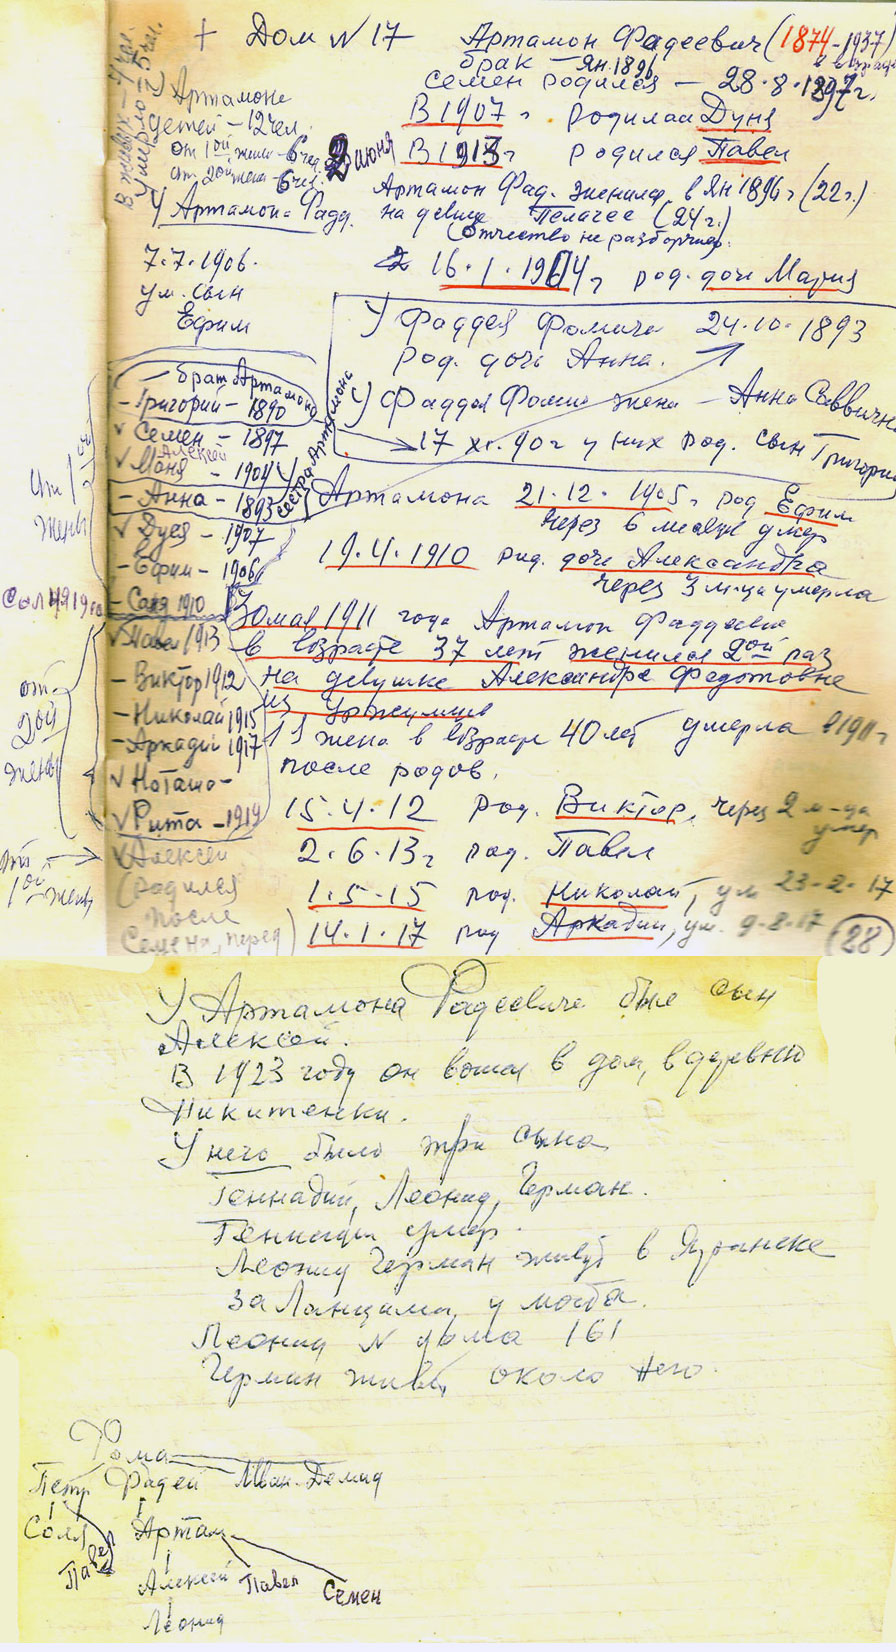 + Дом N 17
Артамон Фадеевич (1874-1937)
брак – Ян. 1896
Семен родился – 28.8.1897г.
В 1907 г родилась Дуня
2 июня
В 1913 г родился Павел
Артамон Фад. женился в Ян 1896 г (22 г.)
на девице Пелагее (24 г.)
(отчество не разборчив.
16.1.1904 г род. дочь Мария
В живых – 7 чел.
Умерло – 5 чел.
Артамона
детей – 12 чел.
от 1ой жены – 6 чел.
от 2ой жены – 6 чел.
У Артамона Фадд.
7.7.1906.
ум. сын
Ефим
У Фаддея Фомича 24.10.1893
род. дочь Анна.
У Фаддея Фомич жена – Анна Саввична
17 XI. 90 г у них род. сын Григорий
– брат Артамона
– Григорий – 1890
✓ Семен – 1897
Алексей
✓ Маня – 1904
– Анна – 1893
сестра Артамона
✓ Дуся – 1907
– Ефим – 1906
– Саня 1910
✓ Павел 1913
– Виктор 1912
– Николай 1915
– Аркадий 1917
✓ Наташа –
✓ Рита – 1919
✓ Алексей
(родился
после
Семена, перед)
от 1ой
жены
от
2ой
жены
от
1ой жены
Артамона 21.12.1905 г род Ефим
через 6 месяцев умер
19.4.1910 род. дочь Александра
через 3 м-ца умерла
30 мая 1911 года Артамон Фаддеевич
в возрасте 37 лет женился 2ой раз
на девушке Александре Федотовне
из Уржумцев
1я жена в возрасте 40 лет умерла в 1911 г
после родов.
15.4.12 род. Виктор, через 2 м-ца
умер
2.6.13 г род. Павел
1.5.15 род. Николай, ум 23-2-17
14.1.17 род Аркадий, ум. 9-8-17
28
У Артамона Фадеевича был сын
Алексей.
В 1923 году он вошел в дом, в деревню
Никитенки.
У него было три сына
Геннадий, Леонид, Герман.
Геннадий умер.
Леонид Герман живут в Яранске
за Ланцами, у моста.
Леонид N дома 161
Герман живет около него.
Фома
Петр Фадей Иван Демид
Павел
Артам
Алексей Павел Семен
Леонид